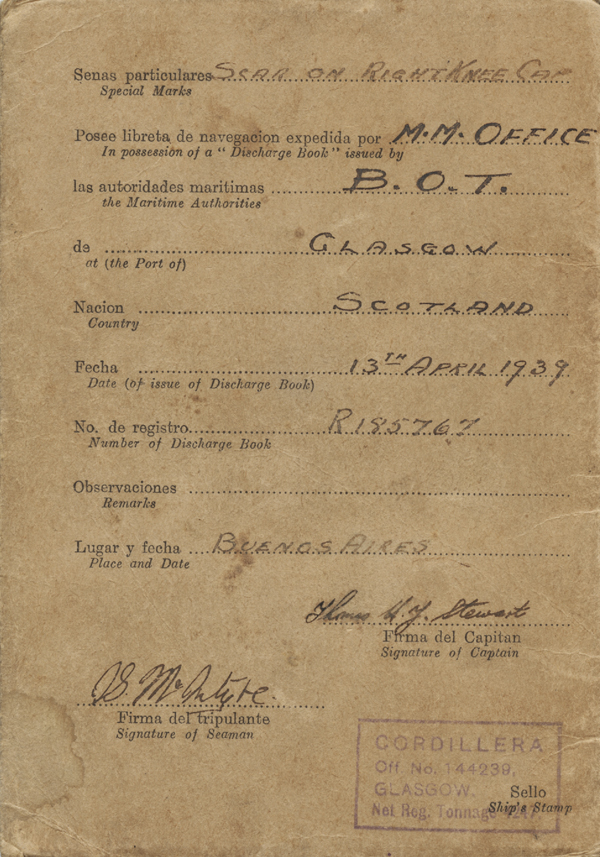 Senas particulares SCAR ON RIGHT KNEE CAP
Special Marks
Posee libreta de navegacion expedida por M.M. OFFICE
In possession of a "Discharge Book" issued by
las autoridades maritimas B.O.T.
the Maritime Authorities
de GLASGOW
at (the Port of)
Nacion SCOTLAND
Country
Fecha 13TH APRIL 1939
Date (of issue of Discharge Book)
No. de registro R185767
Number of Discharge Book
Observaciones
Remarks
Lugar y fecha BUENOS AIRES
Place and Date
Stewart
Firma del Capitan
Signature of Captain
McIntyre
Firma del tripulante
Signature of Seaman
CORDILLERA
Off No. 144239,
GLASGOW.
Net Reg. Tonnage
Sello
Ship's Stamp